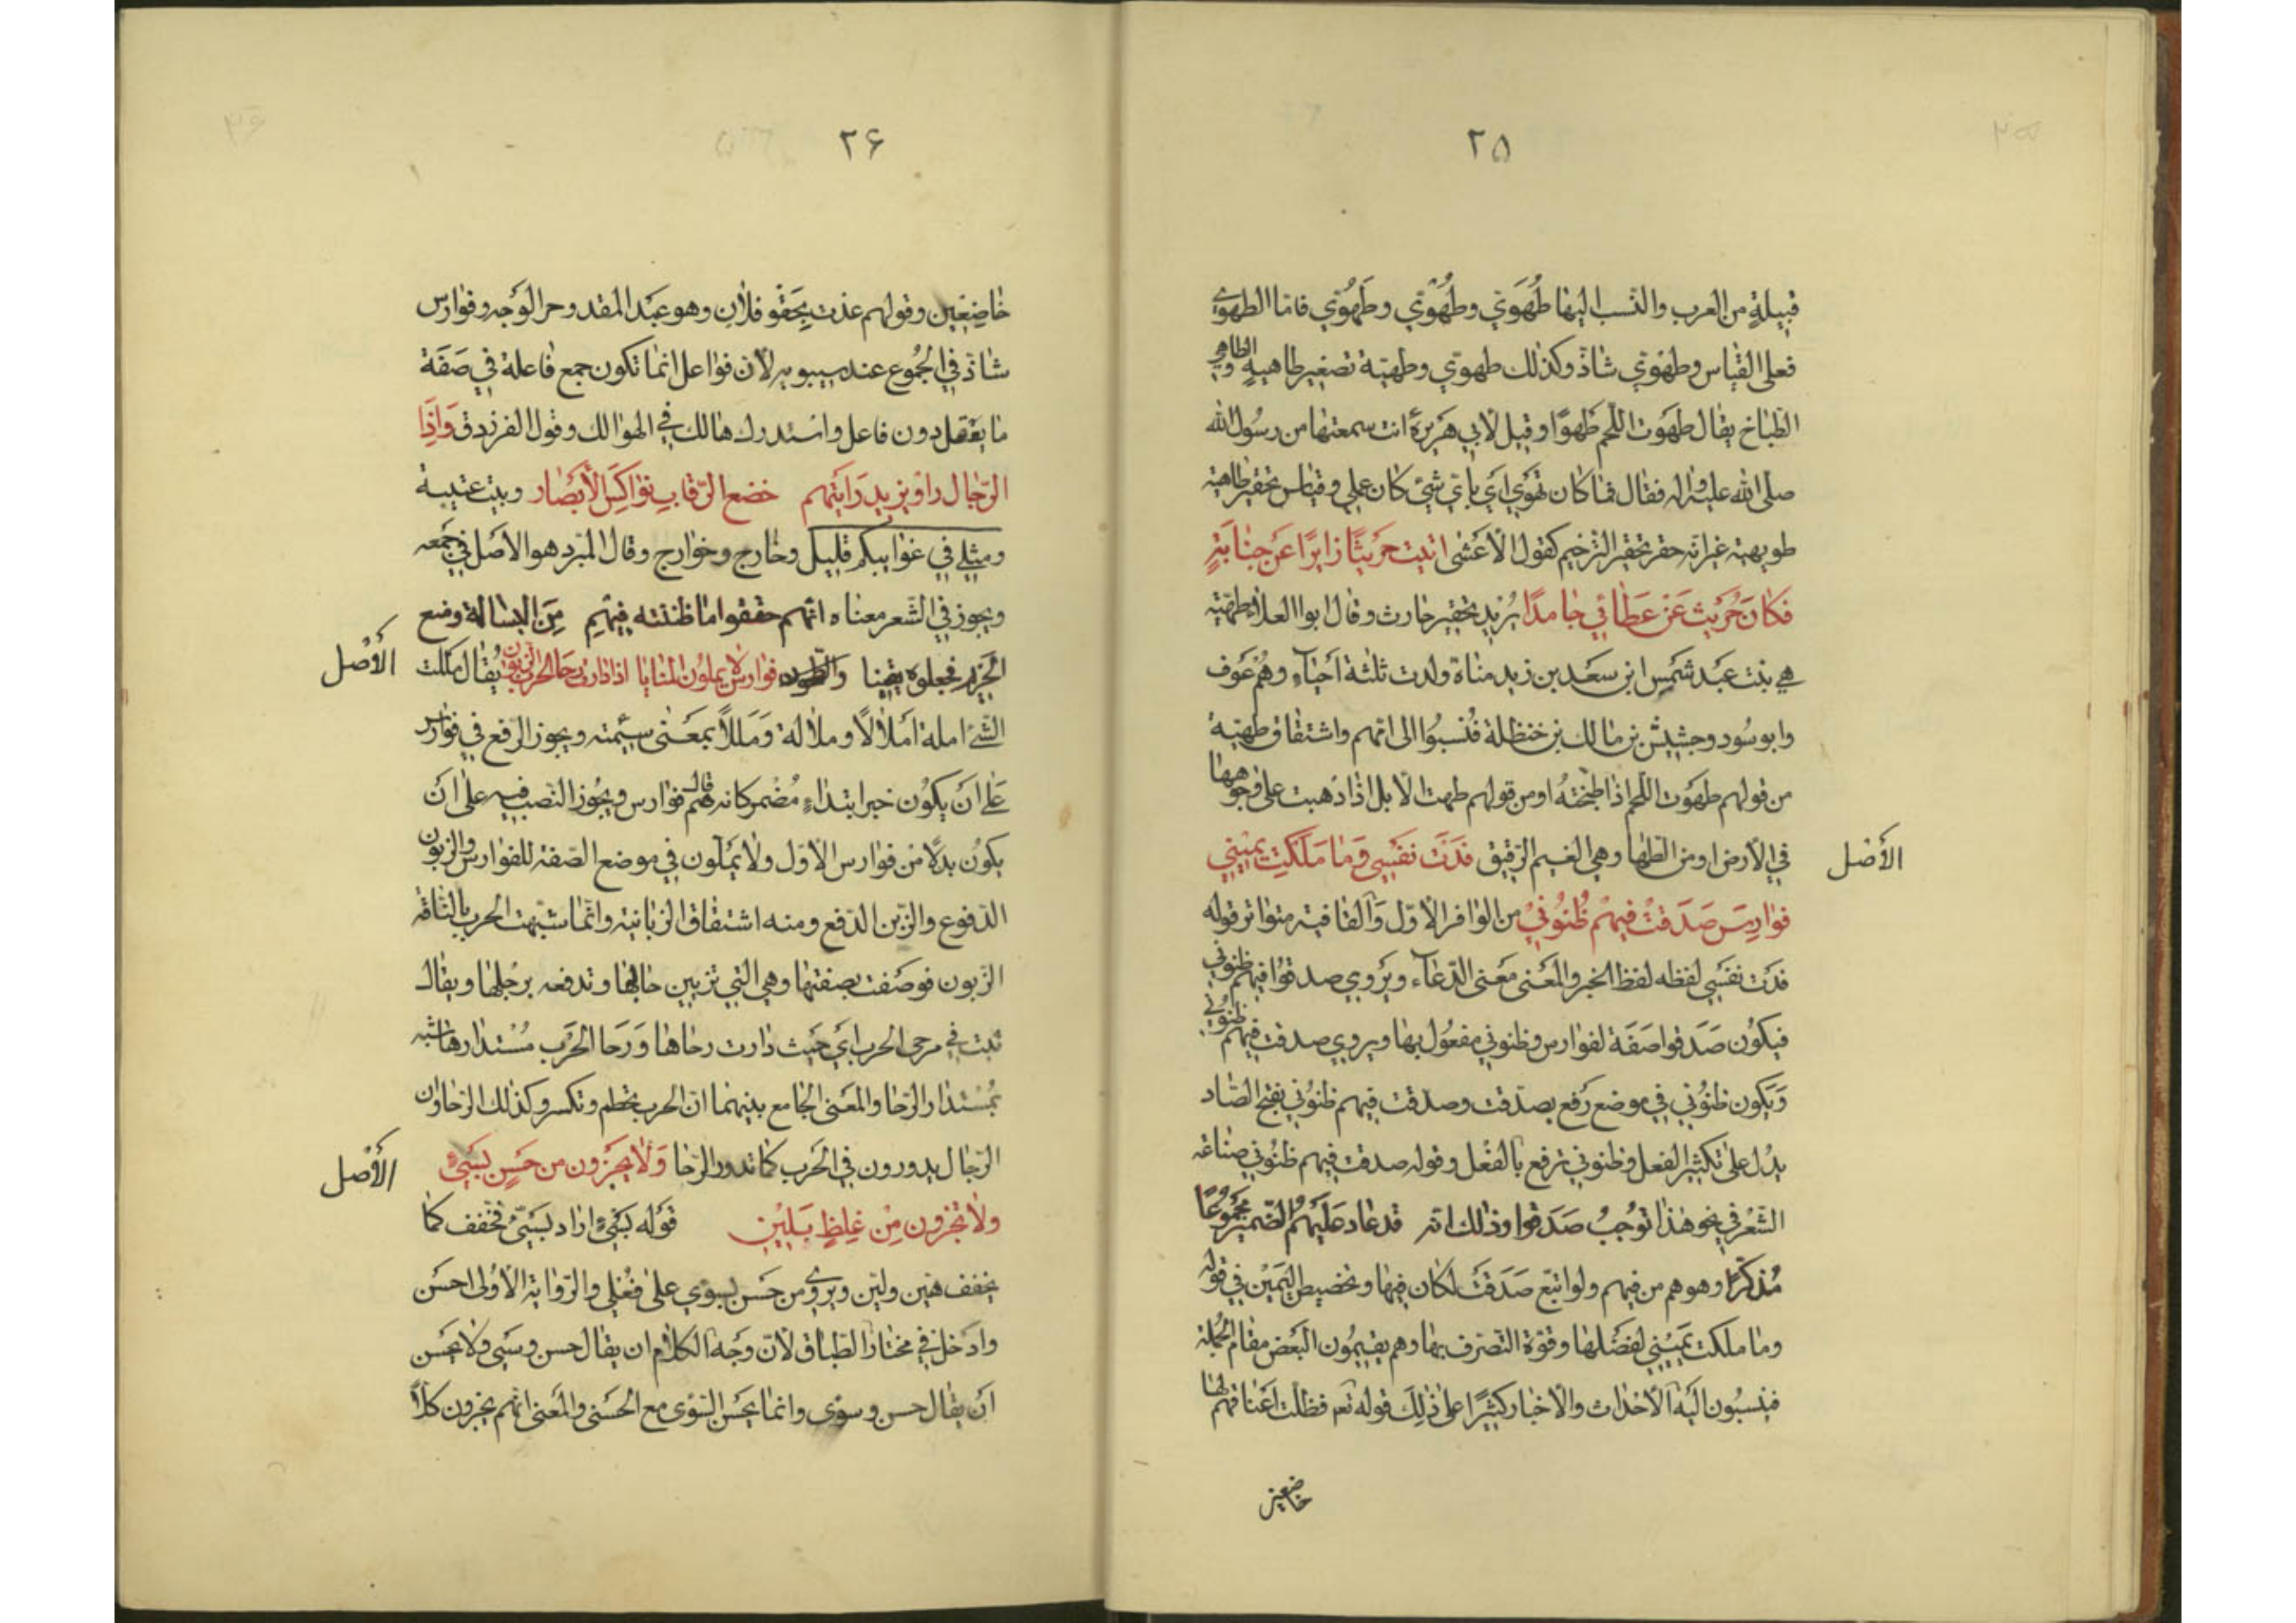 ٢٥
قبيلةٍ من العرب والنسب اليها طُهَوِيّ وطُهْوِيّ وطَهْوِيّ فامّا الطهوي
فعلى القياس وطَهْوِيّ شاذّ وكذلك طهوي وطهيّة تصغير طاهيةٍ والطاهي
الطبّاخ يقال طهوت اللّحم طَهوًا وقيل لابي هريرة انت سمعتها من رسول الله
صلّى الله عليه واله فقال فما كان طهوي اي باي شئ كان عملي وقياس تحقير طاهية
طويهية غير انّه حقر تحقير الترخيم كقول الاعشى اتيت حريثًا زايرًا عن جنابةٍ
فكان حُريث عَن عَطائي جامدًا يريد تحقير حارث وقال ابوا العلاء طهيّة
هي بنت عبد شمس ابن سعد بن زيد مناة ولدت ثلثة احياء وهم عوف
وابو سُود وجشيش بن مالك بن حنظلة فنسبُوا الى امّهم واشتقاق طهيّة
من قولهم طهوت اللّحم اذا طبختُه او من قولهم طهت الابل اذا ذهبت على وجوهها
الأصل
في الارض او من الطها وهي الغيم الرّقيق فدَت نفسي وَما مَلكت يميني
فوارسَ صَدقتْ فيهمْ ظُنُوني من الوافر الاوّل والقافية متواتر قوله
فدَت نفسي لفظه لفظ الخبر والمعنى معنى الدّعاء ويروي صدقوا فيهم ظنوني
فيكون صَدقوا صَفة لفوارس وظنوني مفعُول بها ويروي صدقت فيهم ظنوني
وَيكون ظنُوني في موضع رَفع بصدّقت وصدقت فيهم ظنُوني بفتح الصّاد
يدُل على تكثير الفعل وظنوني ترفع بالفعْل وقوله صدقت فيهم ظنُوني صناعة
الشّعْر في نحو هٰذا توجُبُ صَدَقوا وذلك انّه قد عاد عليهُم الضّمير مجموعًا
مُذكّرًا وهو هم من فيهم ولو اتبع صَدَقتْ لكان فيها وتخصيص اليَمين في قوله
وما ملكت يَميني لفضلها وقوّة التصرّف بها وهم يقيمُون البَعض مقام الجملة
فينسبُون اليَه الاحداث والاخبار كثيرًا على ذٰلِكَ قوله تعٰ فظلت اَعناقهم لها
خاضعين
٢۶
خاضِعين وقولهم عذت بِحَقْو فلانِ وهو عبَد المقد وحر الوَجه وفوارس
شاذ في الجُموع عند سيبويه لان فواعل انما تكون جمع فاعلة في صَفة
ما يعَقل دون فاعل واستدرك هالك في الهوالك وقول الفرزدق وَاِذا
الرّجال راوْ يزيد رَايتهم خضع الرّقابِ نوَاكِسَ الاَبصار وبيت عتيبة
ومثلي في غوايبكم قليل وخارج وخوارج وقال المبّرد هو الاصل في جَمعه
ويجوز في الشّعر معناه انّهم حققوا ما ظننته فيهِم مِنَ البسالة وضع
الأصْل
الحَزم فجعلوه يقينا فوارسَ لا يملونَ المنايا اذا دارت رَحا الحَرب الزّبون يُقال مَللت
الشئ امله اَملالًا وملاله وَمَللًا بمعَنى سئمته ويجوز الرّفع في فوارس
عَلى اَنَ يكوُن خبر ابتداءٍ مُضمر كانه قال هُم فوارس ويجُوز النصب فيه على ان
يكون بدلًا من فوارس الاوّل ولا يمّلون في موضع الصّفة للفوارس والزبون
الدّفوع والزّبن الدّفع ومنه اشتقاق الزبانية وانّما شبّهت الحرب بالناقة
الزّبون فوصَفت بصفتها وهي التي تزبين حالبها وتدفعه برجلها ويقال
ثبت في مرحى الحرب اي حَيث دارت رحاها وَرَحا الحَرب مُسْتدارها شبّه
بمُسْتدار الرّحا والمَعنى الجامع بينهما ان الحرب تحطم وتكسر وكذلك الرّحا وان
الأصْل
الرّجال يدورون في الحَرب كما تدور الرّحا وَلا يجزون من حَسنٍ بسَئ
ولا يجزون مِنْ غِلظٍ بَلينِ قوَله بسَئ اراد بسَيّئ فخفف كما
يخفف هيّن وليّن ويروي من حَسنٍ بسوي على فُعْلي والرّواية الاوُلى احسَن
وادخل في مختار الطباق لانّ وَجه الكلام ان يقال حسن وسَيّئ ولا يحسَن
اَن يقال حسن وسوى وانما يحَسن السّوى مع الحسَنى والمعنى انّهم يجزون كلًّا